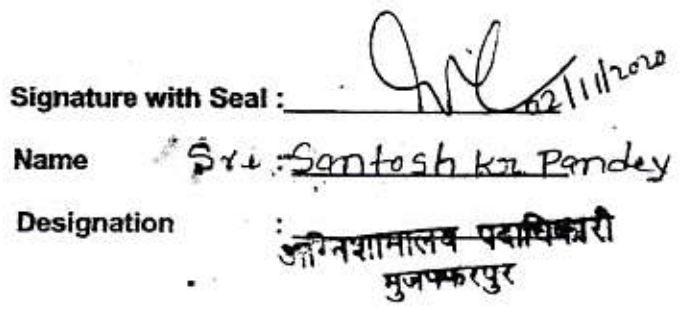 Signature with Seal : 02/11/2020
Name Sri :- Santosh Kr. Pandey
Designation :
अग्निशामालय पदाधिकारी
मुजफ्फरपुर